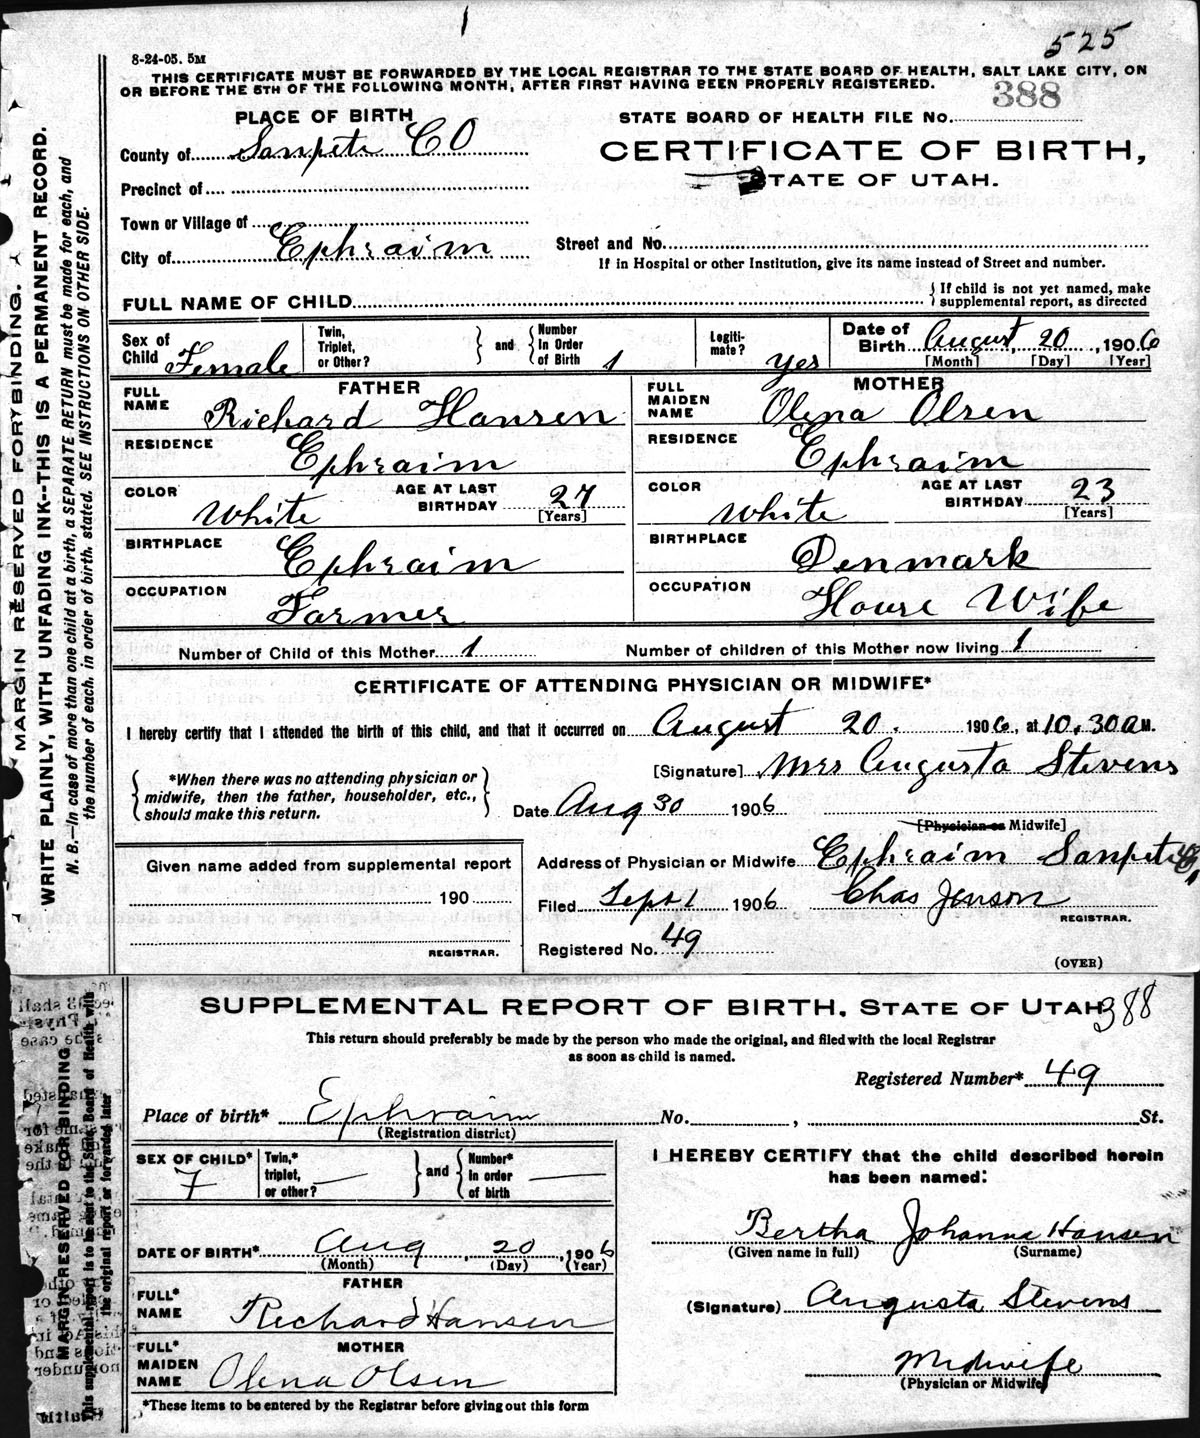 525
8-24-05. 5M
THIS CERTIFICATE MUST BE FORWARDED BY THE LOCAL REGISTRAR TO THE STATE BOARD OF HEALTH, SALT LAKE CITY, ON
OR BEFORE THE 5TH OF THE FOLLOWING MONTH, AFTER FIRST HAVING BEEN PROPERLY REGISTERED.
388
PLACE OF BIRTH
STATE BOARD OF HEALTH FILE No.
County of Sanpete CO
CERTIFICATE OF BIRTH,
STATE OF UTAH.
Precinct of
Town or Village of
City of Ephraim
Street and No.
If in Hospital or other Institution, give its name instead of Street and number.
FULL NAME OF CHILD
{If child is not yet named, make
supplemental report, as directed
Sex of Child Female
Twin, Triplet, or Other?
and
Number In Order of Birth 1
Legiti-mate? yes
Date of Birth August, 20, 1906
[Month] [Day] [Year]
FATHER
MOTHER
FULL NAME Richard Hansen
FULL MAIDEN NAME Olena Olsen
RESIDENCE Ephraim
RESIDENCE Ephraim
COLOR White
AGE AT LAST BIRTHDAY 27 [Years]
COLOR White
AGE AT LAST BIRTHDAY 23 [Years]
BIRTHPLACE Ephraim
BIRTHPLACE Denmark
OCCUPATION Farmer
OCCUPATION House Wife
Number of Child of this Mother 1
Number of children of this Mother now living 1
CERTIFICATE OF ATTENDING PHYSICIAN OR MIDWIFE*
I hereby certify that I attended the birth of this child, and that it occurred on August 20. 1906, at 10.30 a M.
*When there was no attending physician or
midwife, then the father, householder, etc.,
should make this return.
[Signature] Mrs Augusta Stevens
Date Aug 30 1906
[Physician or Midwife]
Given name added from supplemental report
190
REGISTRAR.
Address of Physician or Midwife Ephraim Sanpete Co,
Filed Sept 1 1906 Chas Jenson
REGISTRAR.
Registered No. 49
(OVER)
MARGIN RESERVED FOR BINDING.
WRITE PLAINLY, WITH UNFADING INK--THIS IS A PERMANENT RECORD.
N. B.—In case of more than one child at a birth, a SEPARATE RETURN must be made for each, and
the number of each, in order of birth, stated. SEE INSTRUCTIONS ON OTHER SIDE.
SUPPLEMENTAL REPORT OF BIRTH, STATE OF UTAH 388
This return should preferably be made by the person who made the original, and filed with the local Registrar
as soon as child is named.
Registered Number* 49
Place of birth* Ephraim No. , St.
(Registration district)
SEX OF CHILD* F
Twin,* triplet, or other? —
and
Number* In order of birth —
I HEREBY CERTIFY that the child described herein
has been named:
Bertha Johanna Hansen
(Given name in full) (Surname)
DATE OF BIRTH* Aug, 20, 1906
(Month) (Day) (Year)
FATHER
FULL* NAME Richard Hansen
(Signature) Augusta Stevens
MOTHER
FULL* MAIDEN NAME Olena Olsen
Midwife
(Physician or Midwife)
*These items to be entered by the Registrar before giving out this form
MARGIN RESERVED FOR BINDING
This supplemental report is to be sent to the State Board of Health with
the original report or forwarded later